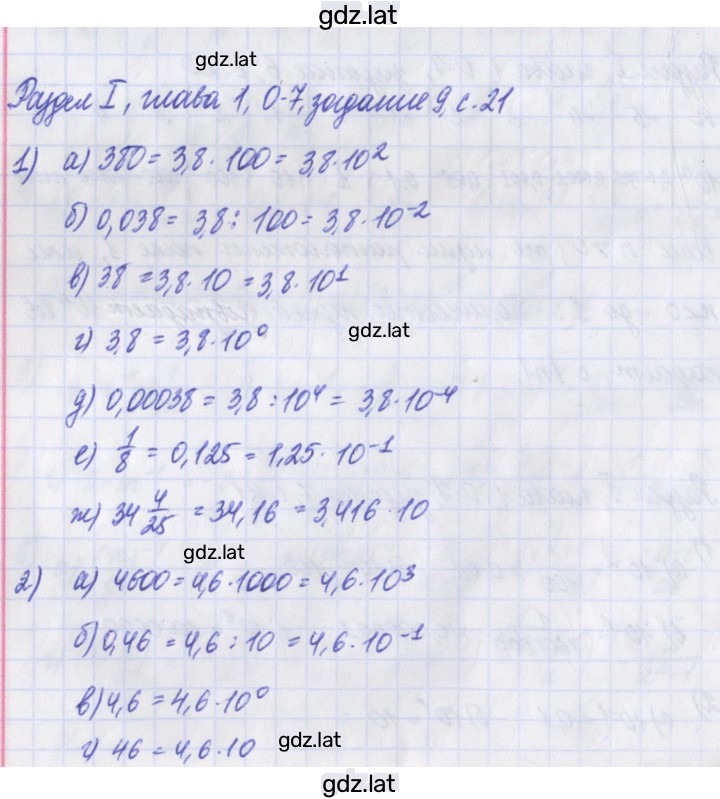 gdz.lat
gdz.lat
Раздел I, глава 1, О-7, задание 9, с. 21
1) а) 380 = 3,8 · 100 = 3,8 · 10²
б) 0,038 = 3,8 : 100 = 3,8 · 10⁻²
в) 38 = 3,8 · 10 = 3,8 · 10¹
г) 3,8 = 3,8 · 10⁰
gdz.lat
д) 0,00038 = 3,8 : 10⁴ = 3,8 · 10⁻⁴
е) 1/8 = 0,125 = 1,25 · 10⁻¹
ж) 34 4/25 = 34,16 = 3,416 · 10
gdz.lat
2) а) 4600 = 4,6 · 1000 = 4,6 · 10³
б) 0,46 = 4,6 : 10 = 4,6 · 10⁻¹
в) 4,6 = 4,6 · 10⁰
г) 46 = 4,6 · 10
gdz.lat
gdz.lat